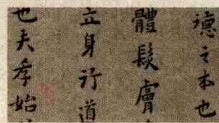 德之本也
體髮膚
立身行道
也夫孝始